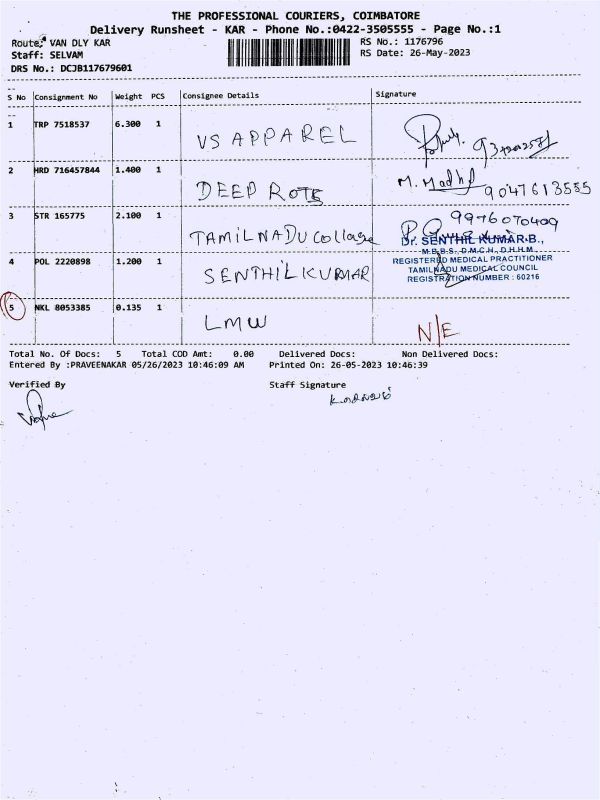 THE PROFESSIONAL COURIERS, COIMBATORE
Delivery Runsheet - KAR - Phone No.:0422-3505555 - Page No.:1
Route: VAN DLY KAR
RS No.: 1176796
Staff: SELVAM
RS Date: 26-May-2023
DRS No.: DCJB117679601
S No Consignment No Weight PCS Consignee Details Signature
1 TRP 7518537 6.300 1 VS APPAREL
2 HRD 716457844 1.400 1 DEEP ROTS M. Madhu 9047613555
3 STR 165775 2.100 1 TAMILNADU collage 9976070409
Dr. SENTHIL KUMAR.B.,
M.B.B.S., D.M.C.H., D.H.H.M.,
4 POL 2220898 1.200 1 SENTHIL KUMAR REGISTERED MEDICAL PRACTITIONER
TAMILNADU MEDICAL COUNCIL
REGISTRATION NUMBER : 60216
5 NKL 8053385 0.135 1 LMW N/E
Total No. Of Docs: 5 Total COD Amt: 0.00 Delivered Docs: Non Delivered Docs:
Entered By :PRAVEENAKAR 05/26/2023 10:46:09 AM Printed On: 26-05-2023 10:46:39
Verified By Staff Signature